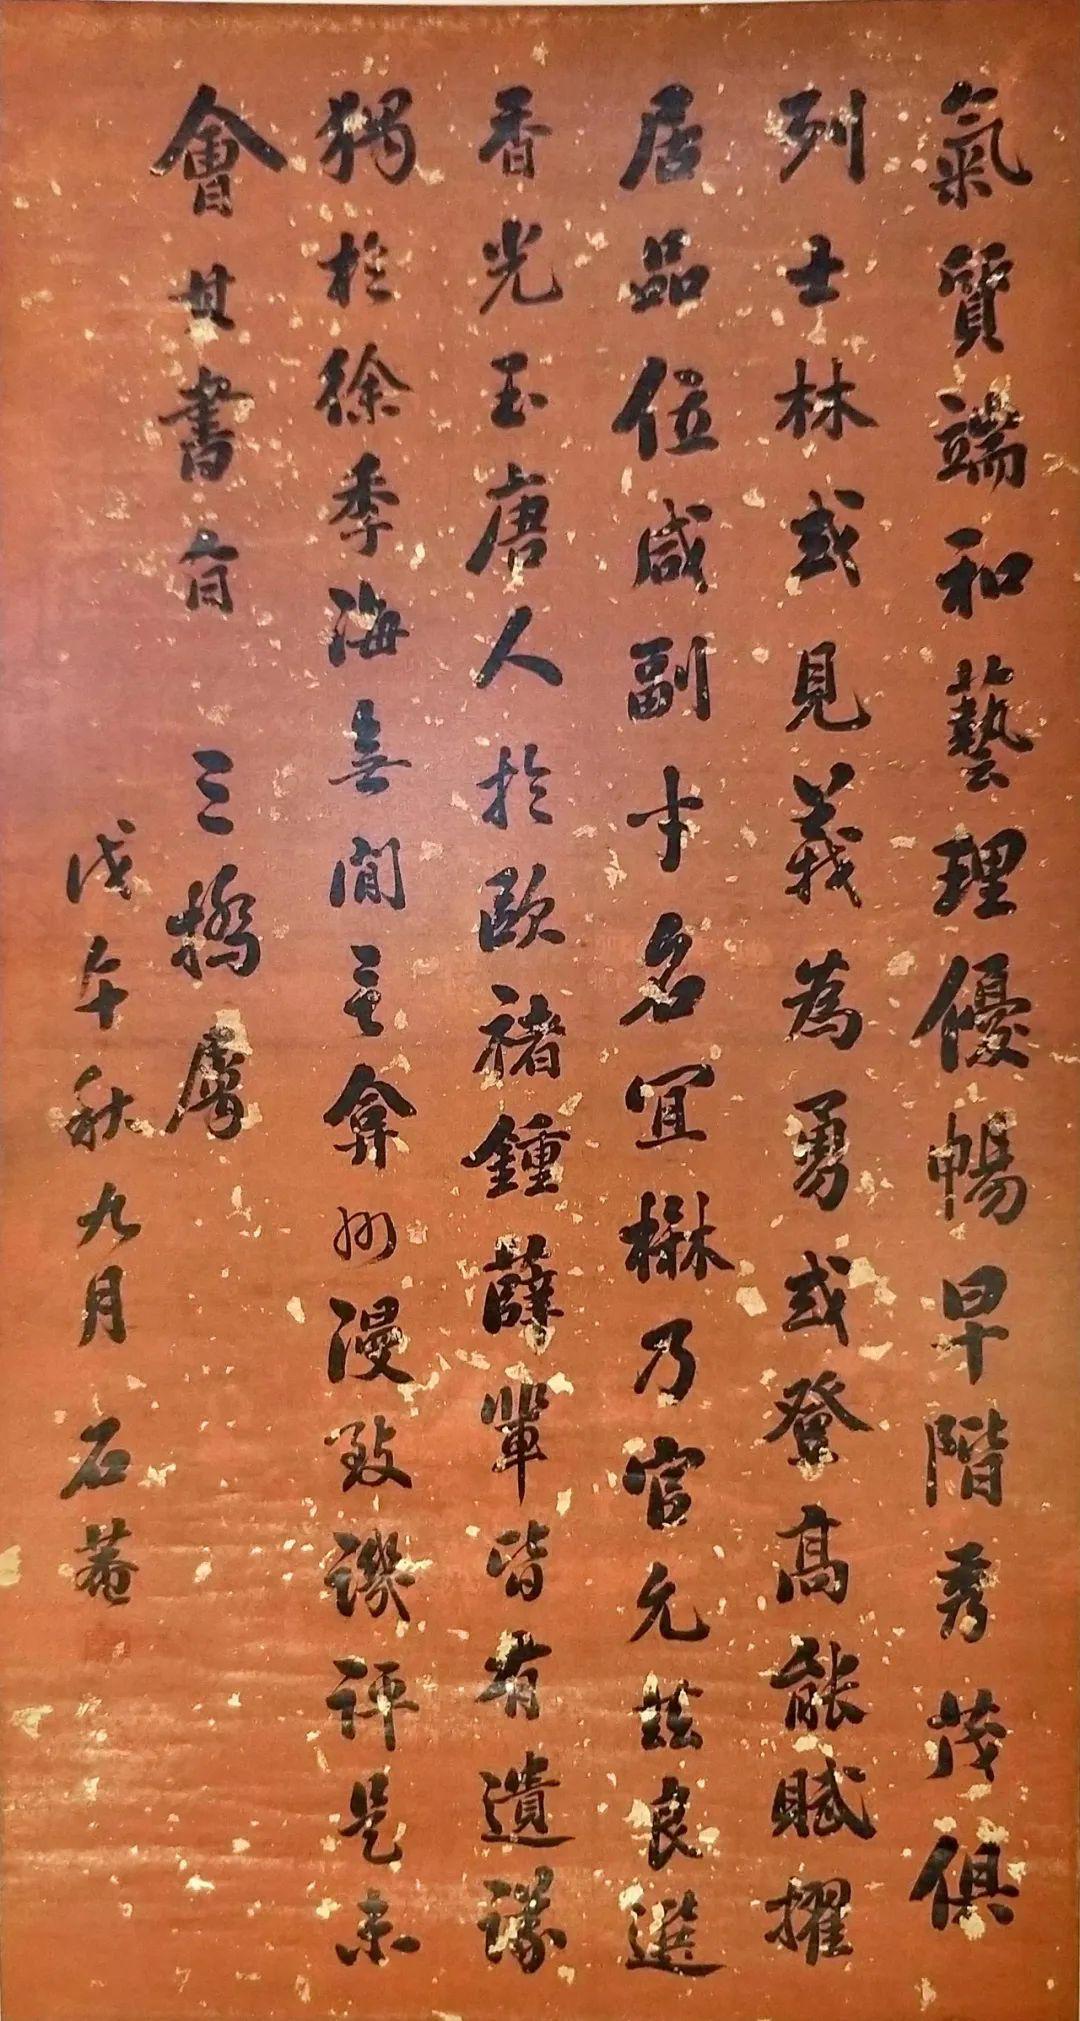 氣質端和藝理優暢早階秀茂俱
列士林或見義為勇或登高能賦擢
居品位咸副才名宜楙乃官允茲良選
香光至唐人於歐褚鍾薛輩皆有遺議
獨於徐季海無間言弇州漫致譏評是未
會其書旨 三橋屬
戊午秋九月石菴